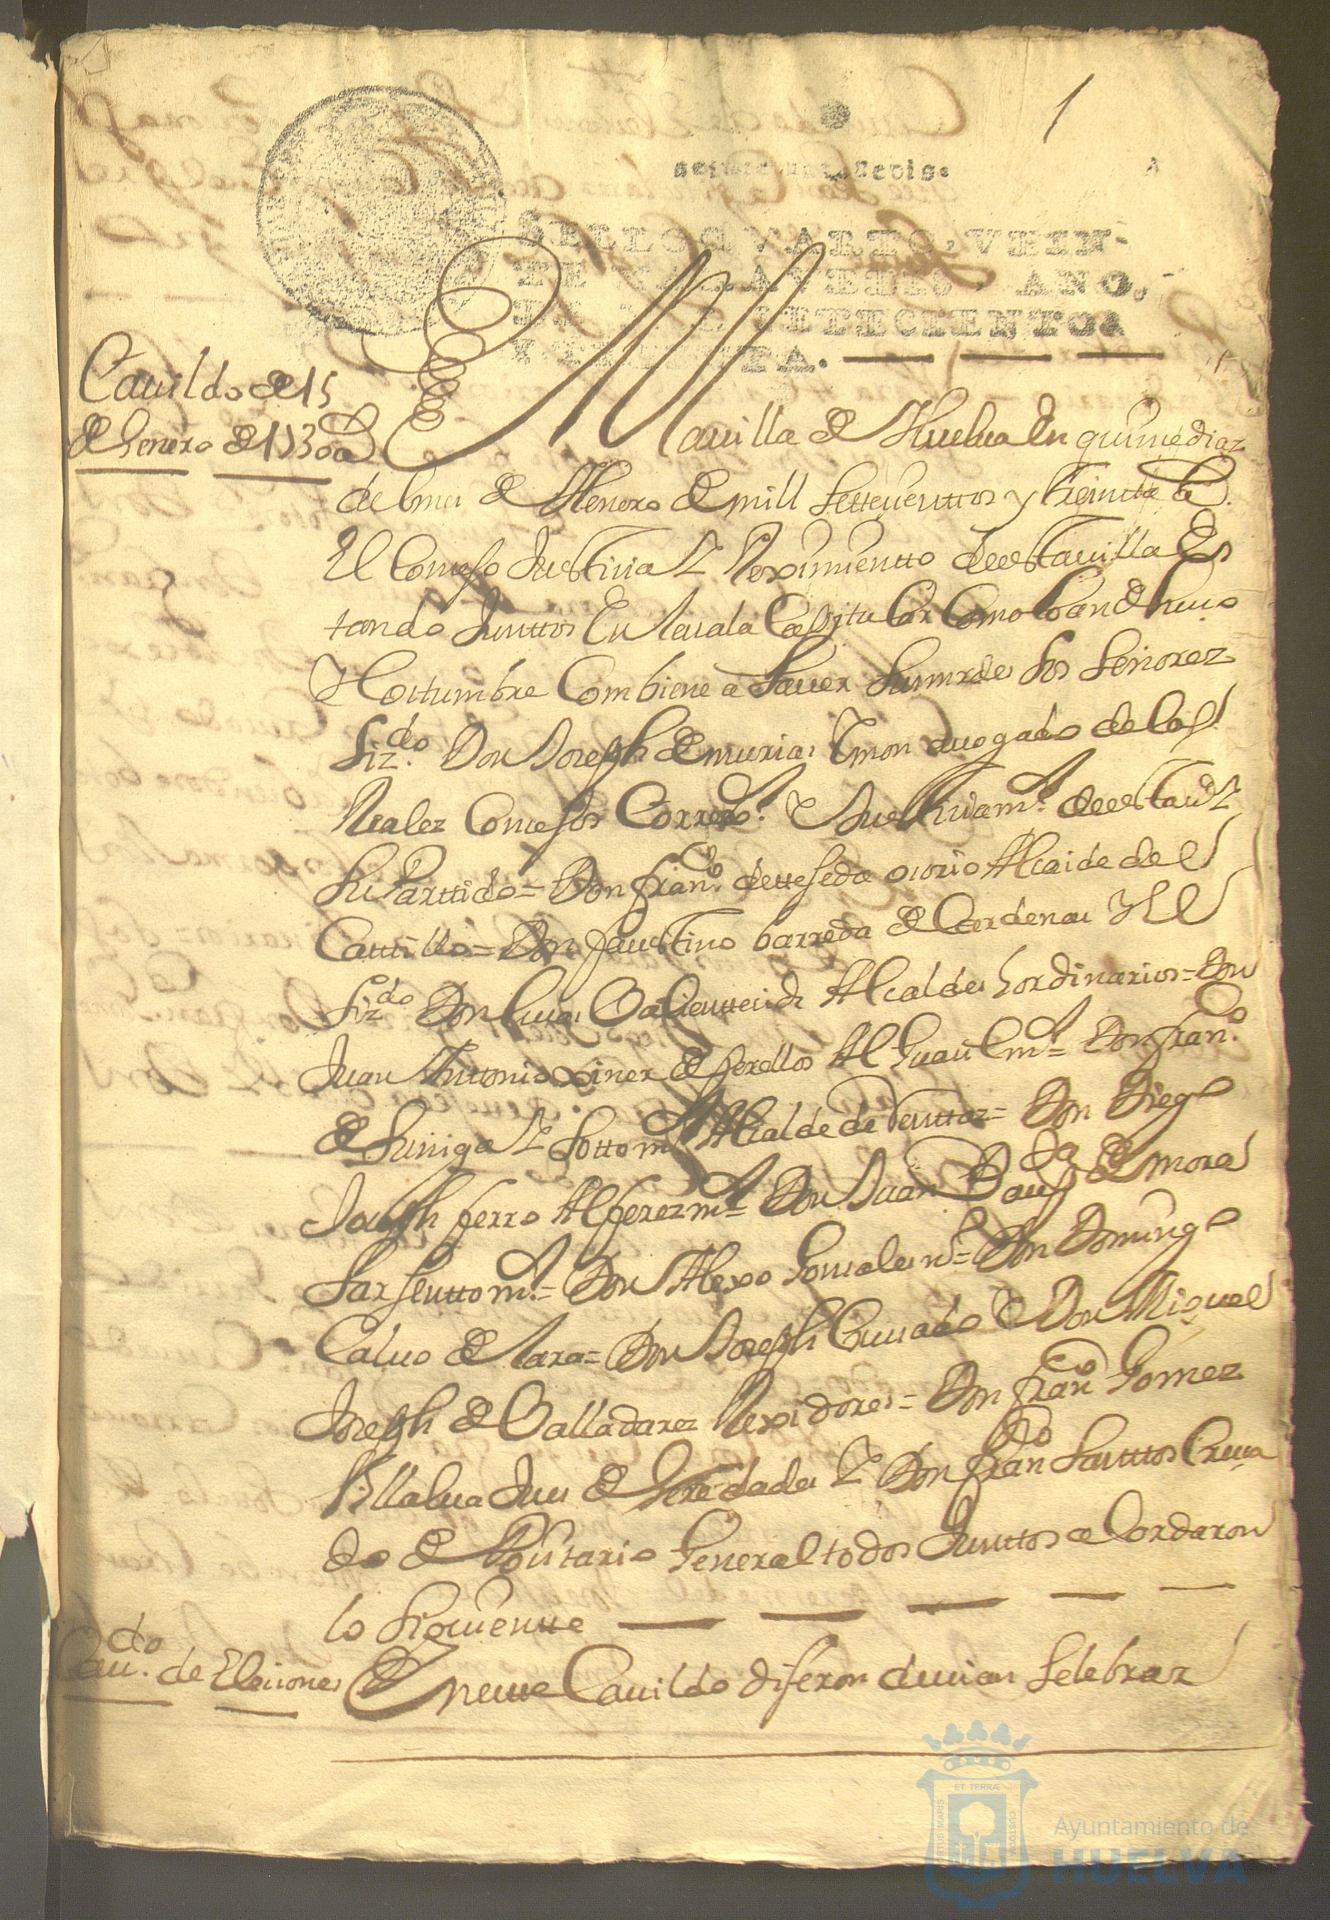 1
SELLO QVARTO, VEIN-
TE MARAVEDIS, AÑO,
DE MIL SETECIENTOS
Y TREINTA.
Cauildo de 15
de henero de 1730 as
En la uilla de Huelua en quinse dias
del mes de Henero de mill settecienttos y treinta as.
El Consejo Justicia Y Reximientto de esta uilla es
tando Junttos En la sala Capitular Como lo an de huso
Y Costumbre Combiene a Sauer sus mrdes los señorez
Lizdo. Don Joseph de murias Ymon auogado de los
Realez Consejos Corregor. Y Justicia mr. de esta ua Y
su Parttido = Don Franco. de ttejeda osorio Alcaide del
Casttillo = Don Faustino barreda de Cardenas Y el
Lizdo Don luis Calientes Alcaldes hordinarios = Don
Juan Anttonio xines de ferellos Alguasil mr = Don franco.
de suniga Y Sottomr Alcalde de = Don Diego
Joseph ferro Alferez mr = Don Juan Baupta de mora
Sarjentto mr = Don Alexo Gonsales = Don Domingo
Caluo de lara = Don Joseph Y Don Miguel
Joseph de Balladarez Rexidores = Don franco Gomez
Villalua Jues de heredades Y Don franco Santtos Criua
do de Poustario General todos Junttos acordaron
lo siguientte
Caudo. de Elesiones
En este Cauildo dijeron auian selebrar
ET TERRÆ
CUSTODIA
PORTUS MARIS
Ayuntamiento de
HUELVA